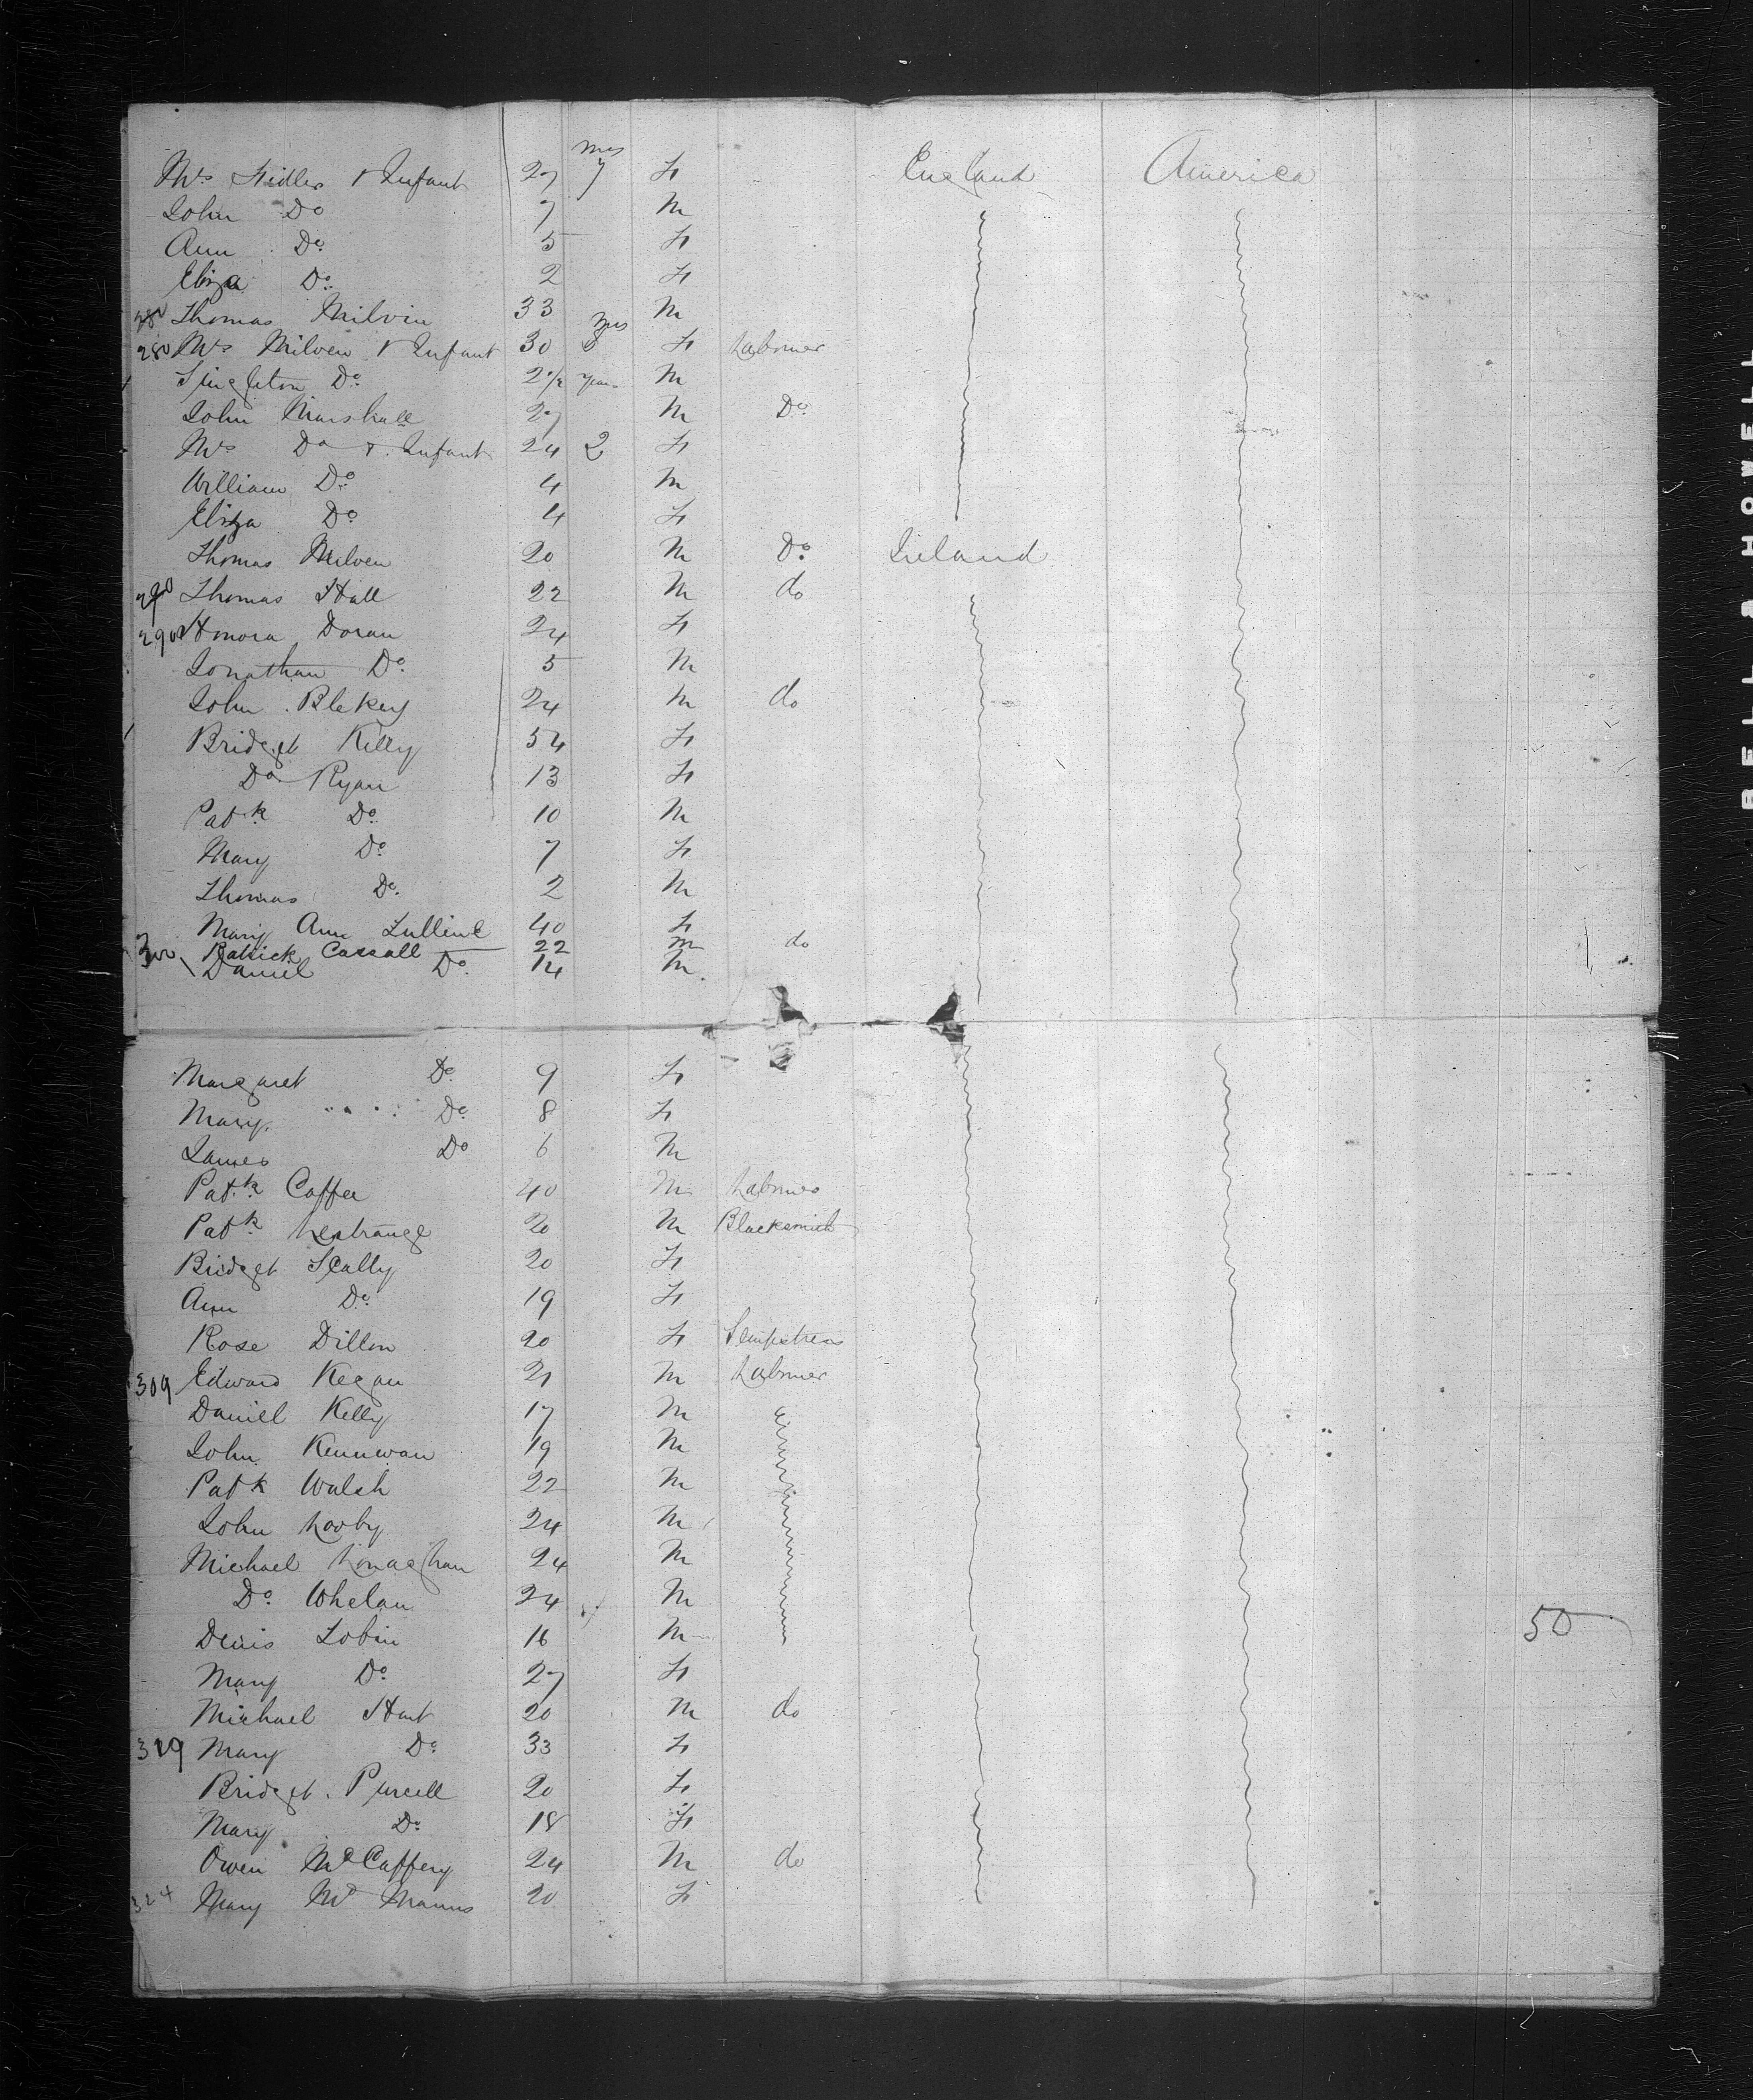 Mrs Fidler & Infant 27 7 mos F England America
John Do 7 M
Ann Do 5 F
Eliza Do 2 F
Thomas Milvin 33 M
280 Mrs Milven & Infant 30 8 mos F Labourer
Singleton Do 2 1/2 years M
John Marshall 27 M Do
Mrs Do & Infant 24 2 F
William Do 4 M
Eliza Do 4 F
Thomas Milven 20 M Do Ireland
290 Thomas Hall 22 M do
290 Honora Doran 24 F
Jonathan Do 5 M
John Blekey 24 M do
Bridget Kelly 54 F
Do Ryan 13 F
Patk Do 10 M
Mary Do 7 F
Thomas Do 2 M
Mary Ann 40 F
300 Patrick Cassall 22 m do
Daniel Do 14 M
Margaret Do 9 F
Mary Do 8 F
James Do 6 M
Patk Caffea 40 M Labourer
Patk Lestrange 20 M Blacksmith
Bridget Scally 20 F
Ann Do 19 F
Rose Dillon 20 F Sempstress
309 Edward Kegan 21 M Labourer
Daniel Kelly 17 M
John Kennwan 19 M
Patk Walsh 22 M
John Looby 24 M
Michael Lonaghan 24 M
Do Whelan 24 M
50
Denis Tobin 16 M
Mary Do 27 F
Michael Hart 20 M do
319 Mary Do 33 F
Bridget Purcell 20 F
Mary Do 18 F
Owen McCaffery 24 M do
324 Mary Mc Manus 20 F
BELL & HOWELL